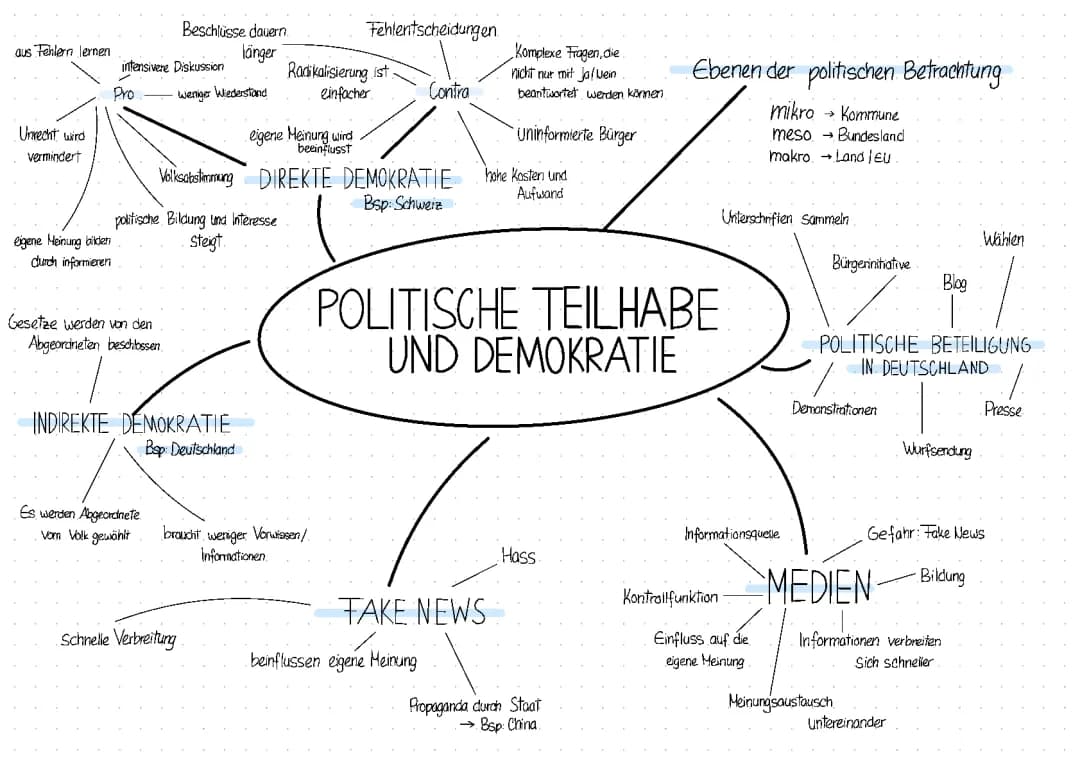 Beschlüsse dauern
länger
Fehlentscheidungen
aus Fehlern lernen
intensivere Diskussion
Radikalisierung ist
einfacher
Komplexe Fragen, die
nicht nur mit ja/nein
beantwortet werden können
Pro
weniger Wiederstand
Contra
Unrecht wird
vermindert
eigene Meinung wird
beeinflusst
Uninformierte Bürger
Volksabstimmung
DIREKTE DEMOKRATIE
Bsp: Schweiz
hohe Kosten und
Aufwand
politische Bildung und Interesse
steigt
eigene Meinung bilden
durch informieren
Ebenen der politischen Betrachtung
mikro → Kommune
meso → Bundesland
makro → Land/EU
POLITISCHE TEILHABE
UND DEMOKRATIE
Unterschriften sammeln
Bürgerinitiative
Blog
Wählen
POLITISCHE BETEILIGUNG
IN DEUTSCHLAND
Demonstrationen
Wurfsendung
Presse
Gesetze werden von den
Abgeordneten beschlossen
INDIREKTE DEMOKRATIE
Bsp: Deutschland
Es werden Abgeordnete
vom Volk gewählt
braucht weniger Vorwissen/
Informationen
Hass
FAKE NEWS
Schnelle Verbreitung
beinflussen eigene Meinung
Propaganda durch Staat
→ Bsp: China
Informationsquelle
Gefahr: Fake News
MEDIEN
Bildung
Kontrollfunktion
Einfluss auf die
eigene Meinung
Informationen verbreiten
sich schneller
Meinungsaustausch
untereinander